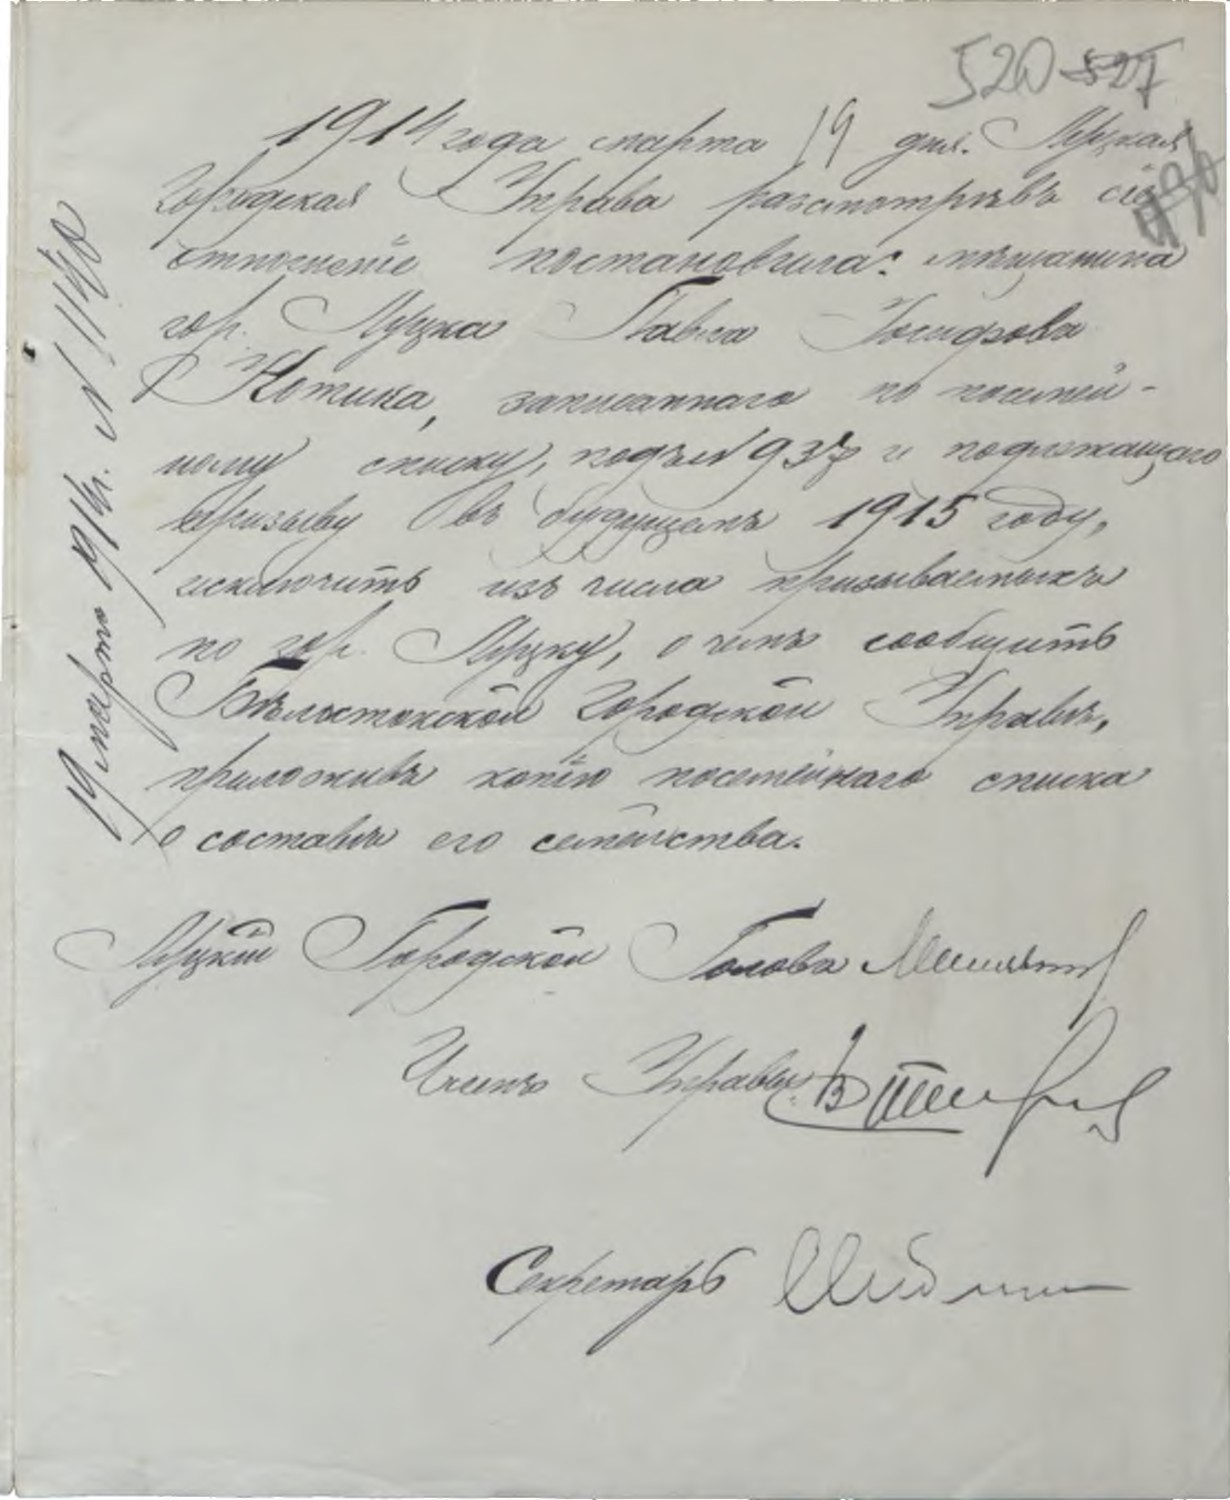 520 527
1914 года марта 19 дня. Луцкая
Городская Управа разсмотрѣвъ сіе
отношеніе постановила: мѣщанина
гор. Луцка Павла Іосифова
Котика, записаннаго по посемей-
ному списку, подъ № 937 и подлежащаго
призыву въ будущемъ 1915 году,
исключить изъ числа призываемыхъ
по гор. Луцку, о чемъ сообщить
Бѣлостокской Городской Управѣ,
приложивъ копію посемейнаго списка
о составѣ его семейства.
19 марта 1914г. №
Луцкій Городской Голова
Членъ Управы
Секретарь